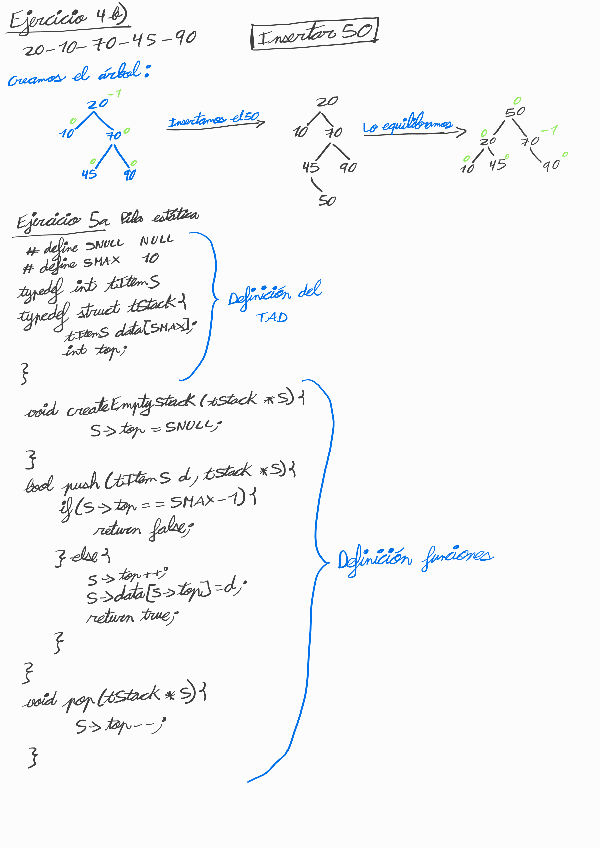 Ejercicio 4b)
20-10-70-45-90
Insertar 50
Creamos el árbol:
20 -1
0 10
70 0
0 45
0 90
Insertamos el 50
20
10 70
45 90
50
Lo equilibramos
0
50
0 20
70 -1
0 10
45 0
90 0
Ejercicio 5a Pila estática
# define SNULL NULL
# define SMAX 10
typedef int tItemS
typedef struct tStack{
tItemS data[SMAX];
int top;
}
Definición del
TAD
void createEmptyStack(tStack *S){
S->top = SNULL;
}
bool push(tItemS d, tStack *S){
if(S->top == SMAX-1){
return false;
} else{
S->top++;
S->data[S->top]=d;
return true;
}
}
void pop(tStack *S){
S->top--;
}
Definición funciones